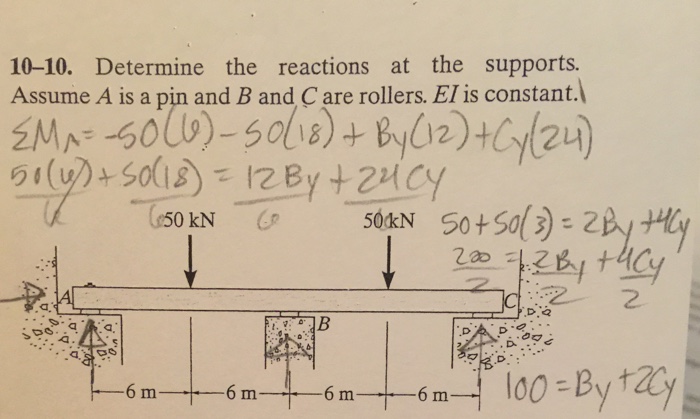 10–10. Determine the reactions at the supports.
Assume A is a pin and B and C are rollers. EI is constant.
ΣMA = -50(6) - 50(18) + By(12) + Cy(24)
50(6) + 50(18) = 12By + 24Cy
6 6 6
50 kN 50 kN
50 + 50(3) = 2By + 4Cy
200 = 2By + 4Cy
2 2 2
A C
B
6 m 6 m 6 m 6 m
100 = By + 2Cy